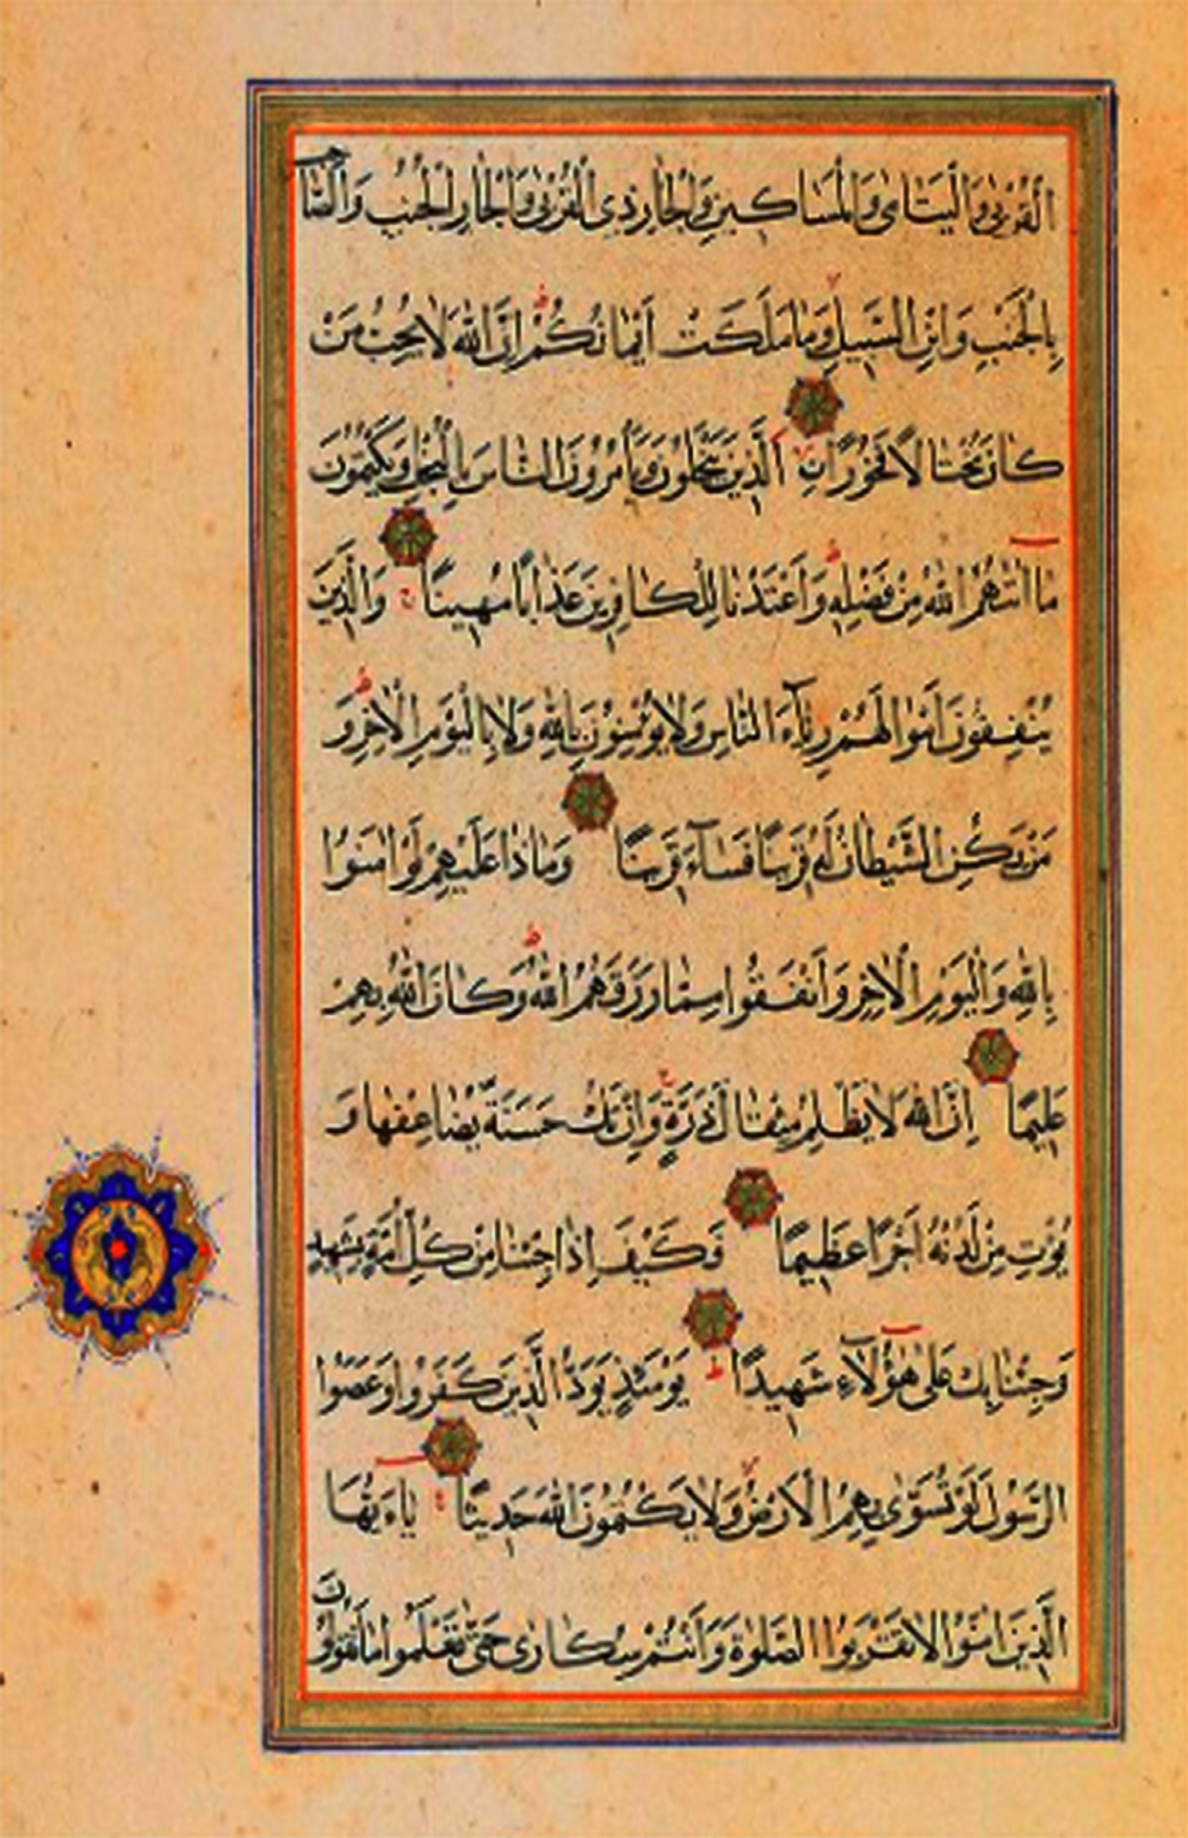 الْقُرْبىٰ وَالْيَتَامىٰ وَالْمَسَاكِينِ وَالْجَارِ ذِي الْقُرْبىٰ وَالْجَارِ الْجُنُبِ وَالصَّاحِبِ
بِالْجَنْبِ وَابْنِ السَّبِيلِ وَمَا مَلَكَتْ اَيْمَانُكُمْ ط اِنَّ اللّٰهَ لَا يُحِبُّ مَنْ
كَانَ مُخْتَالًا فَخُورًا نِ الَّذِينَ يَبْخَلُونَ وَيَأْمُرُونَ النَّاسَ بِالْبُخْلِ وَيَكْتُمُونَ
مَا اٰتٰهُمُ اللّٰهُ مِنْ فَضْلِهِ ط وَاَعْتَدْنَا لِلْكَافِرِينَ عَذَابًا مُهِينًا ج وَالَّذِينَ
يُنْفِقُونَ اَمْوَالَهُمْ رِئَآءَ النَّاسِ وَلَا يُؤْمِنُونَ بِاللّٰهِ وَلَا بِالْيَوْمِ الْاٰخِرِ ط وَ
مَنْ يَكُنِ الشَّيْطَانُ لَهُ قَرِينًا فَسَآءَ قَرِينًا وَمَاذَا عَلَيْهِمْ لَوْ اٰمَنُوا
بِاللّٰهِ وَالْيَوْمِ الْاٰخِرِ وَاَنْفَقُوا مِمَّا رَزَقَهُمُ اللّٰهُ ط وَكَانَ اللّٰهُ بِهِمْ
عَلِيمًا اِنَّ اللّٰهَ لَا يَظْلِمُ مِثْقَالَ ذَرَّةٍ ج وَاِنْ تَكُ حَسَنَةً يُضَاعِفْهَا وَ
يُؤْتِ مِنْ لَدُنْهُ اَجْرًا عَظِيمًا فَكَيْفَ اِذَا جِئْنَا مِنْ كُلِّ اُمَّةٍ بِشَهِيدٍ
وَجِئْنَا بِكَ عَلىٰ هٰؤُلَآءِ شَهِيدًا ط يَوْمَئِذٍ يَوَدُّ الَّذِينَ كَفَرُوا وَعَصَوُا
الرَّسُولَ لَوْ تُسَوّٰى بِهِمُ الْاَرْضُ وَلَا يَكْتُمُونَ اللّٰهَ حَدِيثًا يَاءَيُّهَا
الَّذِينَ اٰمَنُوا لَا تَقْرَبُوا الصَّلٰوةَ وَاَنْتُمْ سُكَارٰى حَتّٰى تَعْلَمُوا مَا تَقُولُونَ